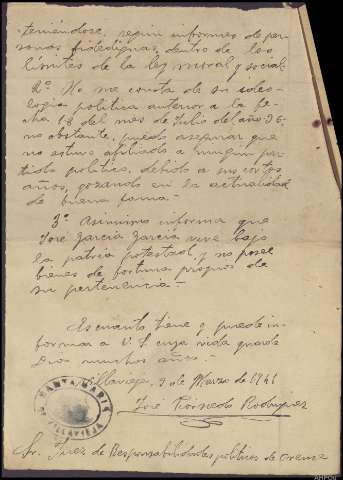 teniéndose, según informes de per-
sonas fidedignas, dentro de los
límites de la ley moral y social.
2º. No me consta de su ideo-
logía política anterior a la fe-
cha 18 del mes de Julio del año 36-
no obstante, puedo asegurar que
no estuvo afiliado a ningun par-
tido político, debido a sus cortos
años, gozando en la actualidad
de buena fama.-
3º Asimismo informa que
José García García vive bajo
la patria potestad, y no posee
bienes de fortuna propios de
su pertenencia.-
Es cuanto tiene y puede in-
formar a V.S. cuya vida guarde
Dios muchos años.-
Villavieja, 3 de Marzo de 1941
José Rodriguez
SANTA MARIA
VILLAVIEJA
Sr. Juez de Responsabilidades políticas de Orense